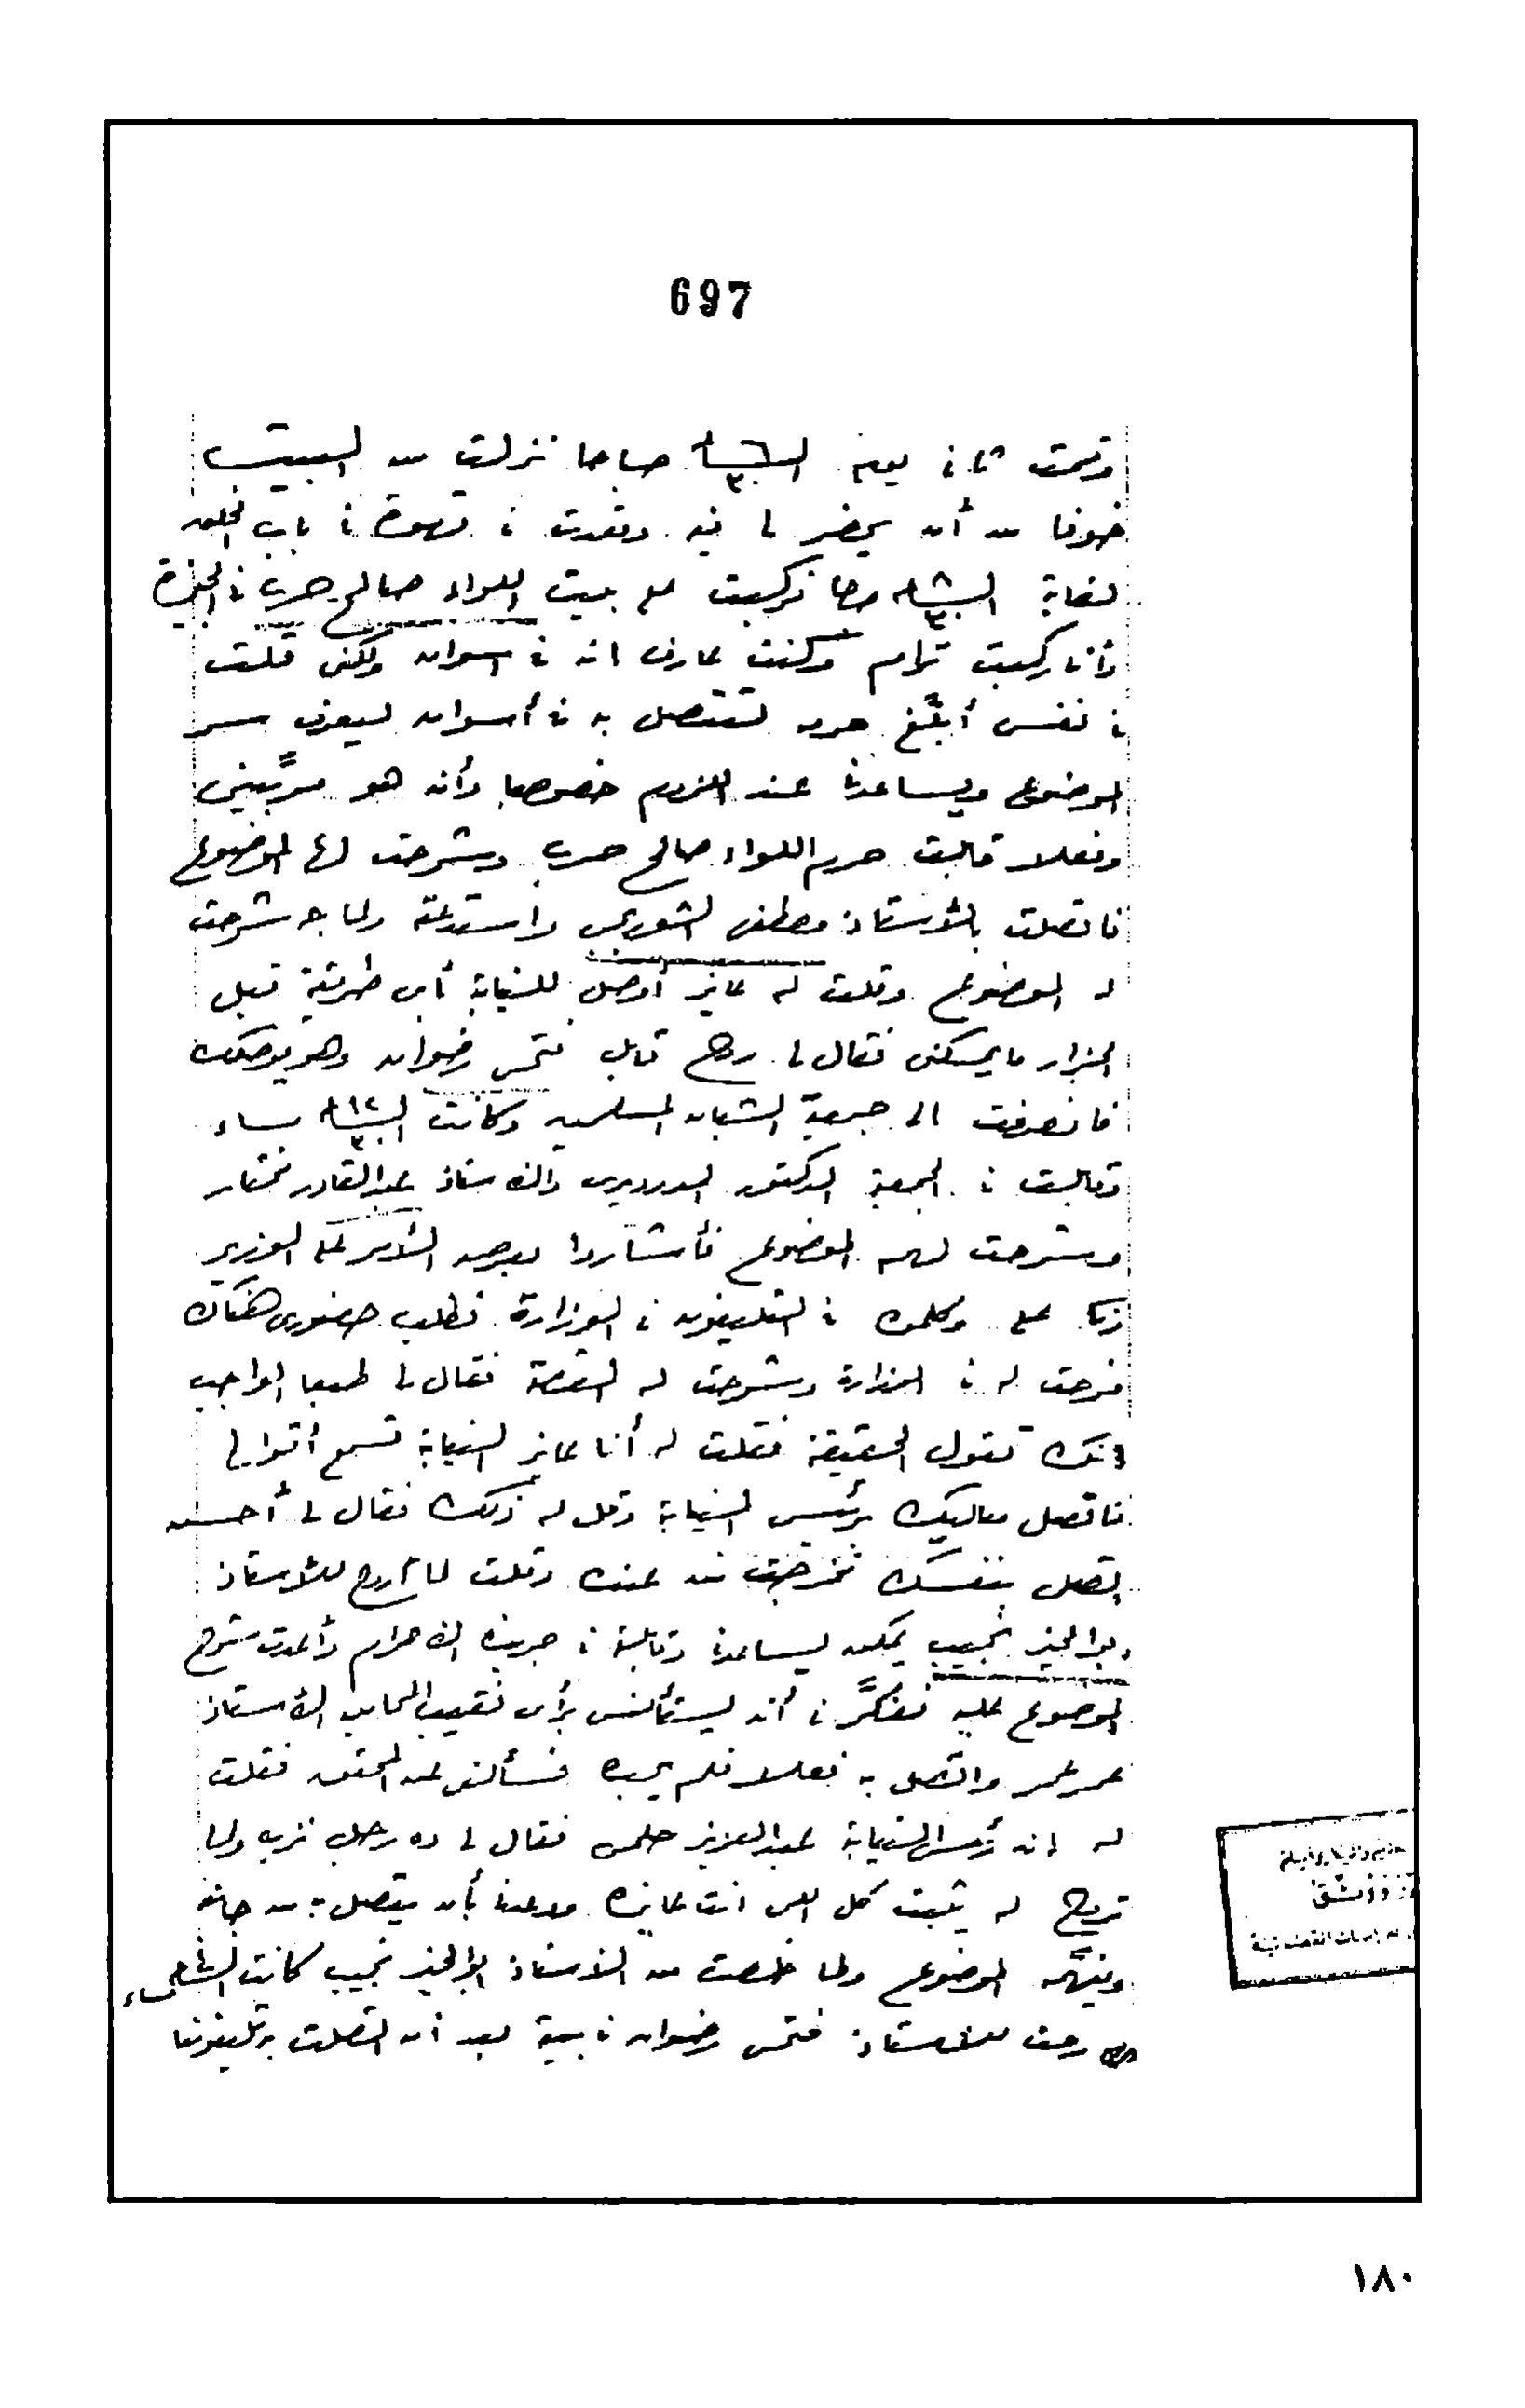 697
وقمت ثانى يوم الساعة ٦ صباحا نزلت من البيت
خوفا من أن يحضر لى فيه وقعدت فى قهوة فى باب الخلق
لغاية الساعة ٨ صباحا ركبت على بيت اللواء صالح حرب فى الجيزة
وأنا ركبت ترام وكنت عارف انه فى اسوان ولكنى قلت
فى نفسى أبلّغ حرمه لتتصل به فى أسوان ليعرف سر
الموضوع ويساعدنا عند اللزوم خصوصا وأنه هو مربّينى
وفعلا قابلت حرم اللواء صالح حرب وشرحت لها الموضوع
فاتصلت بالأستاذ مصطفى الشوربجى واستدعته ولما جه شرحت
له الموضوع وقلت له عايز أوصل للنيابة بأى طريقة قبل
الجزار ما يمسكنى فقال لى روح قابل فتحى رضوان وهو يوصلك
فانصرفت الى جمعية الشبان المسلمين وكانت الساعة ١٢ مساء
وقابلت فى الجمعية الدكتور الدرديرى والاستاذ عبد القادر مختار
وشرحت لهم الموضوع فأشاروا بعرض الأمر على الوزير
زكى على وكلموه فى التليفون فى الوزارة فطلب حضورى هناك
فرحت له فى الوزارة وشرحت له القصة فقال لى طبعا الواجب
انك تقول الحقيقة فقلت له أنا عايز النيابة تسمع أقوالى
فاتصل معاليك برئيس النيابة وقل له ذلك فقال لى أحسن
اتصل بنفسك فخرجت من عنده وقلت لما أروح للأستاذ
ابو الخير نجيب يمكن يساعدنا وقابلته فى جريدة الاهرام وأعدت شرح
الموضوع عليه ففكّر فى أنه يستأنس برأى نقيب المحامين الأستاذ
عمر عمر واتصل به فعلا فلم يجده فسألنى عن المحقق فقلت
له انه رئيس النيابة عبد العزيز حلمى فقال لى ده رجل نزيه ولما
تروح له يثبت كل اللى انت عايزه ووعدنا بأن يتصل به من جانبه
ويفهمه الموضوع ولما خلصت من الاستاذ ابو الخير نجيب كانت الساعة مساء
رحت للاستاذ فتحى رضوان فى بيته بعد أن اتصلت به تليفونيا
١٨٠